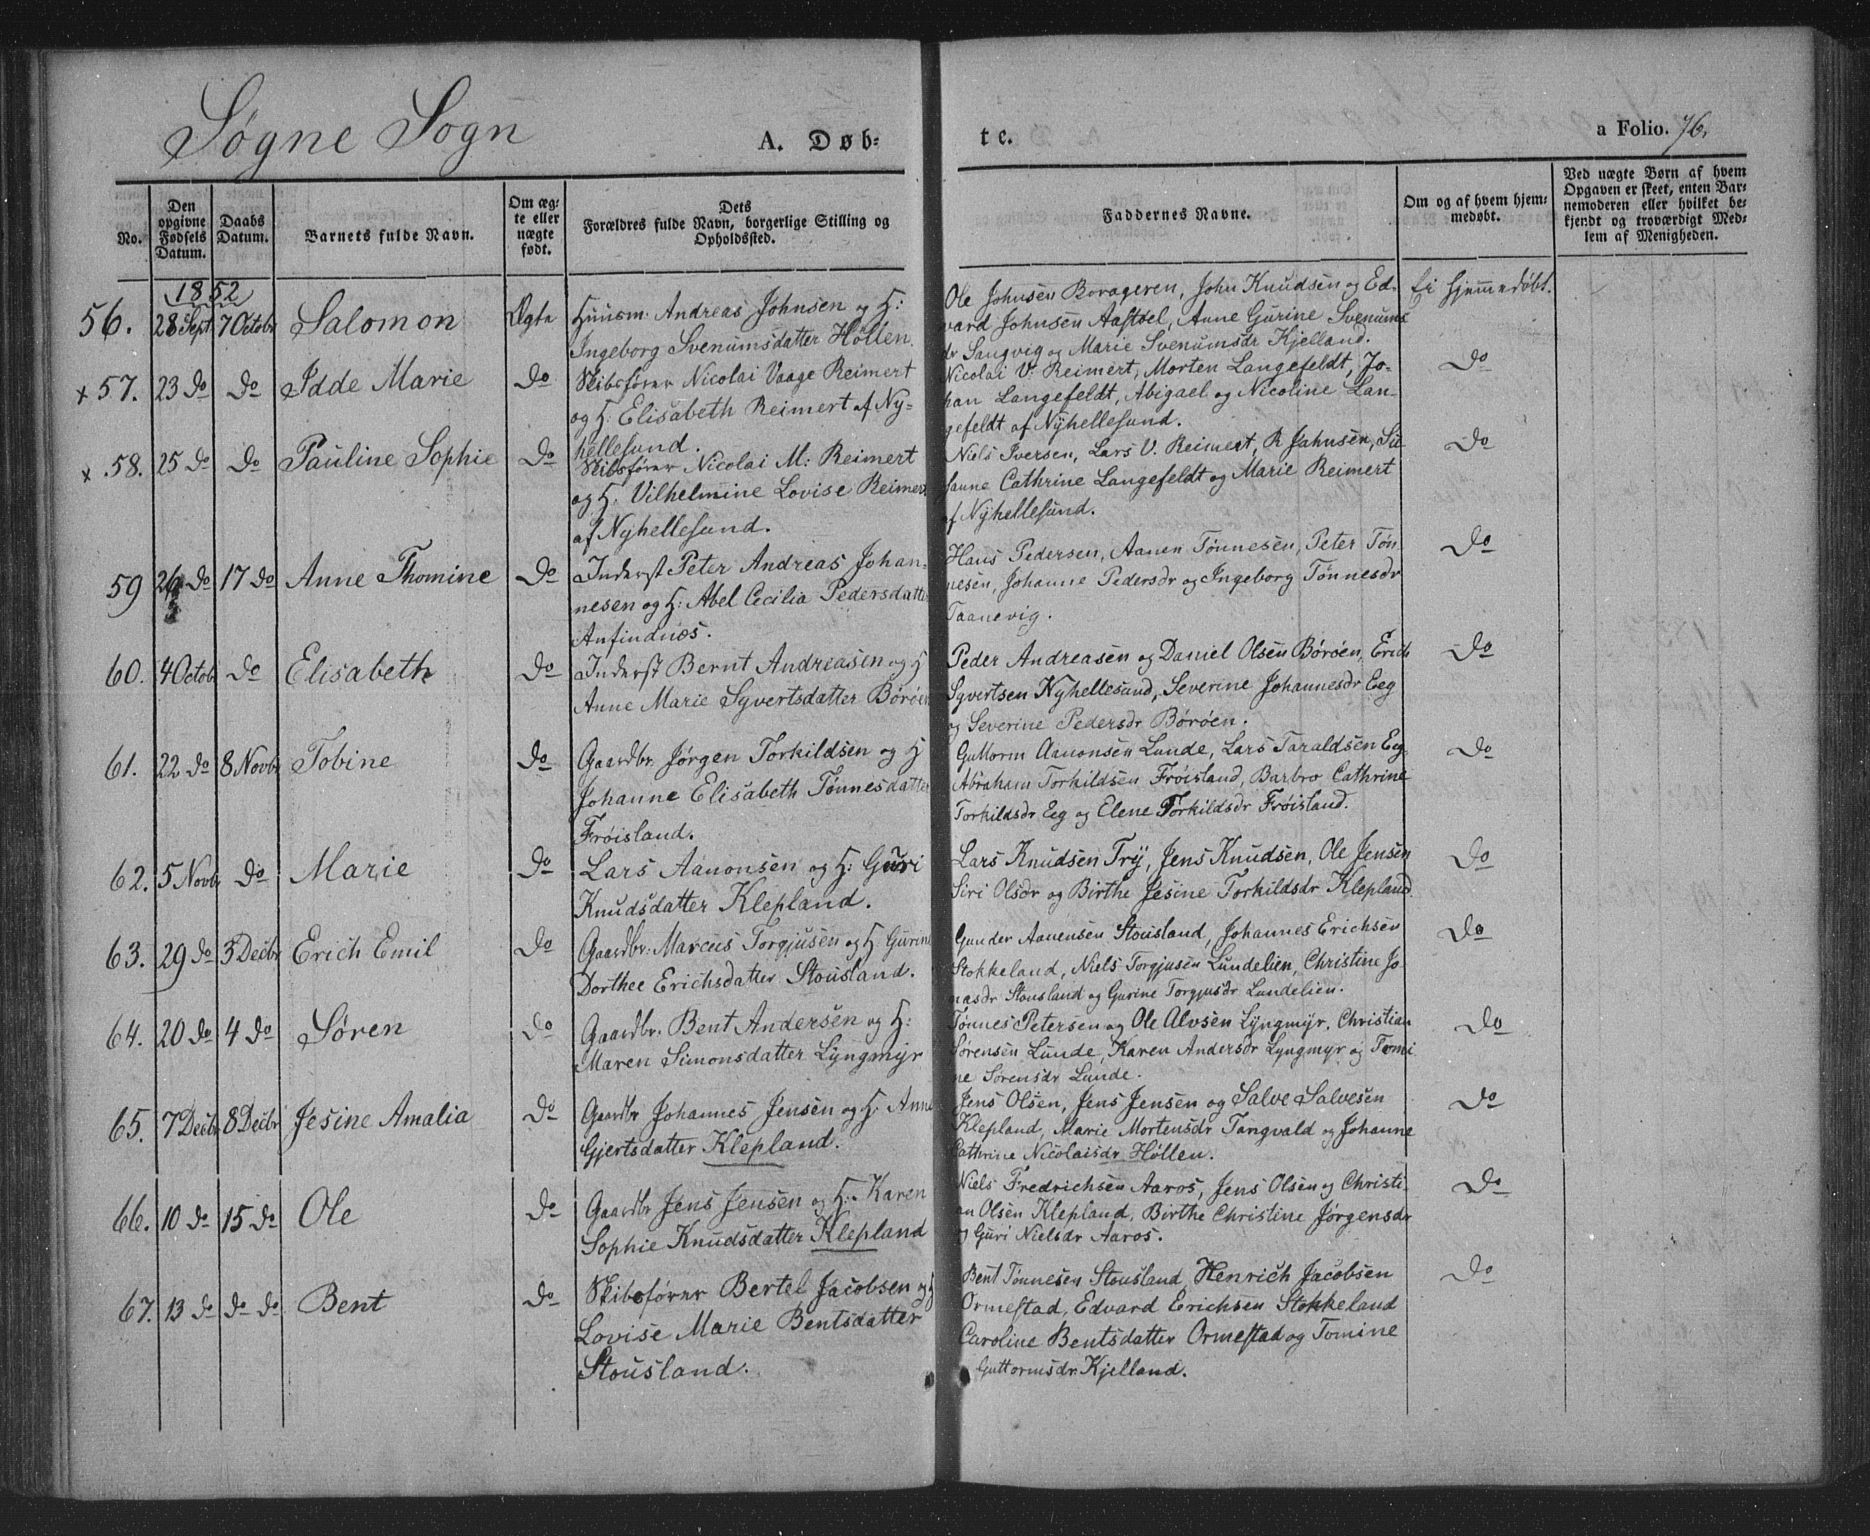 Søgne Sogn
A. Døb-
te.
a Folio. 76.
No.
Den opgivne Fødsels Datum.
Daabs Datum.
Barnets fulde Navn.
Om ægte eller nægte født.
Dets
Forældres fulde Navn, borgerlige Stilling og
Opholdssted.
Faddernes Navne.
Om og af hvem hjem-
medøbt.
Ved nægte Børn af hvem
Opgaven er skeet, enten Bar-
nemoderen eller hvilket be-
kjendt og troværdigt Med-
lem af Menigheden.
1852
56. 28 Sept. 7 Octobr Salomon Ægte
Huusm. Andreas Johnsen og H:
Ingeborg Svenumsdatter Høllen.
Ole Johnsen Borageren, John Knudsen og Ed-
vard Johnsen Aastøel, Anne Gurine Svenums
dr Langvig og Marie Svenumsdr Kjelland.
Ei hjemmedøbt.
x 57. 23 do do Idde Marie do
Skibsfører Nicolai Vaage Reimert
og H. Elisabeth Reimert af Ny-
hellesund.
Nicolai V. Reimert, Morten Langefeldt, Jo-
han Langefeldt, Abigael og Nicoline Lan-
gefeldt af Nyhellesund.
do
x 58. 25 do do Pauline Sophie do
Skibsfører Nicolai M: Reimert
og H. Vilhelmine Lovise Reimert
af Nyhellesund.
Niels Iversen, Lars V. Reimert, R Jahnsen, Su-
sanne Cathrine Langefeldt og Marie Reimert
af Nyhellesund.
do
59 26 do 17 do Anne Thomine do
Inderst Peter Andreas Johan-
nesen og H: Abel Cecilia Pedersdatter
Anfindnæs.
Hans Pedersen, Aanen Tønnesen, Peter Tøn-
nesen, Johanne Pedersdr og Ingeborg Tønnesdr
Taanevig.
do
60. 4 Octob do Elisabeth do
Inderst Bernt Andreasen og H
Anne Marie Syvertsdatter Børøen
Peder Andreasen og Daniel Olsen Børøen, Erich
Syvertsen Nyhellesund, Severine Johannesdr Eeg
og Severine Pedersdr Børøen.
do
61. 22 do 8 Novbr Tobine do
Gaardbr. Jørgen Torkildsen og H
Johanne Elisabeth Tønnesdatter
Frøisland.
Guttorm Aanonsen Lunde, Lars Taraldsen Eeg
Abraham Torkildsen Frøisland, Barbro Cathrine
Torkildsdr Eeg og Elene Torkildsdr Frøisland.
do
62. 5 Novbr do Marie do
Lars Aanonsen og H: Guri
Knudsdatter Klepland.
Lars Knudsen Try, Jens Knudsen, Ole Jensen
Siri Olsdr og Birthe Jesine Torkildsdr Klepland
do
63. 29 do 3 Decbr Erich Emil do
Gaardbr. Marcus Torgjusen og H. Gurine
Dorthee Erichsdatter Stousland.
Gunder Aanensen Stousland, Johannes Erichsen
Stokkeland, Niels Torgjusen Lundelien, Christine Jo-
nasdr Stousland og Gurine Torgjusdr Lundelien.
do
64. 20 do 4 do Søren do
Gaardbr. Bent Andersen og H:
Maren Simonsdatter Lyngmyr
Tønnes Petersen og Ole Alvsen Lyngmyr, Christian
Sørensen Lunde, Karen Andersdr Lyngmyr og Tomi-
ne Sørensdr Lunde.
do
65. 7 Decbr 8 Decbr Jesine Amalia do
Gaardbr Johannes Jensen og H. Anne
Gjertsdatter Klepland.
Jens Olsen, Jens Jensen og Salve Salvesen
Klepland, Marie Mortensdr Tangvald og Johanne
Cathrine Nicolaisdr Høllen.
do
66. 10 do 15 do Ole do
Gaardbr Jens Jensen og H: Karen
Sophie Knudsdatter Klepland
Niels Fredrichsen Aaros, Jens Olsen og Christi-
an Olsen Klepland, Birthe Christine Jørgensdr
og Guri Nielsdr Aaros.
do
67. 13 do do do Bent do
Skibsfører Bertel Jacobsen og H
Lovise Marie Bentsdatter
Stousland.
Bent Tønnesen Stousland, Henrich Jacobsen
Ormestad, Edvard Erichsen Stokkeland
Caroline Bentsdatter Ormestad og Tomine
Guttormsdr Kjelland.
do